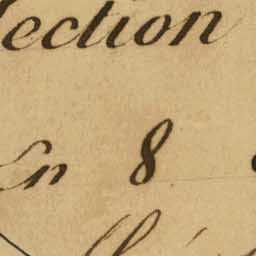 lection
En 8